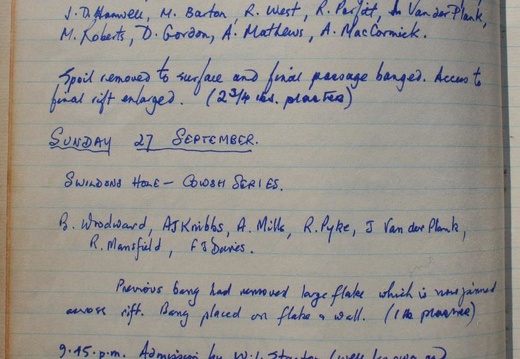 J. D. Hanwell, M. Barton, R. West, R. Parfitt, A. Van der Plank,
M. Roberts, D. Gordon, A. Mathews, A. MacCormick.
Spoil removed to surface and final passage banged. Access to
final rift enlarged. (2 3/4 lbs. plaster)
SUNDAY 27 SEPTEMBER.
SWILDONS HOLE – COWSH SERIES.
B. Woodward, AJ Knibbs, A. Mills, R. Pyke, J Van der Plank,
R. Mansfield, FJ Davies.
Previous bang had removed large flake which is now jammed
across rift. Bang placed on flake & wall. (1 lb plaster)
9.45. p.m. Admission by W. I. Stanton (well known and